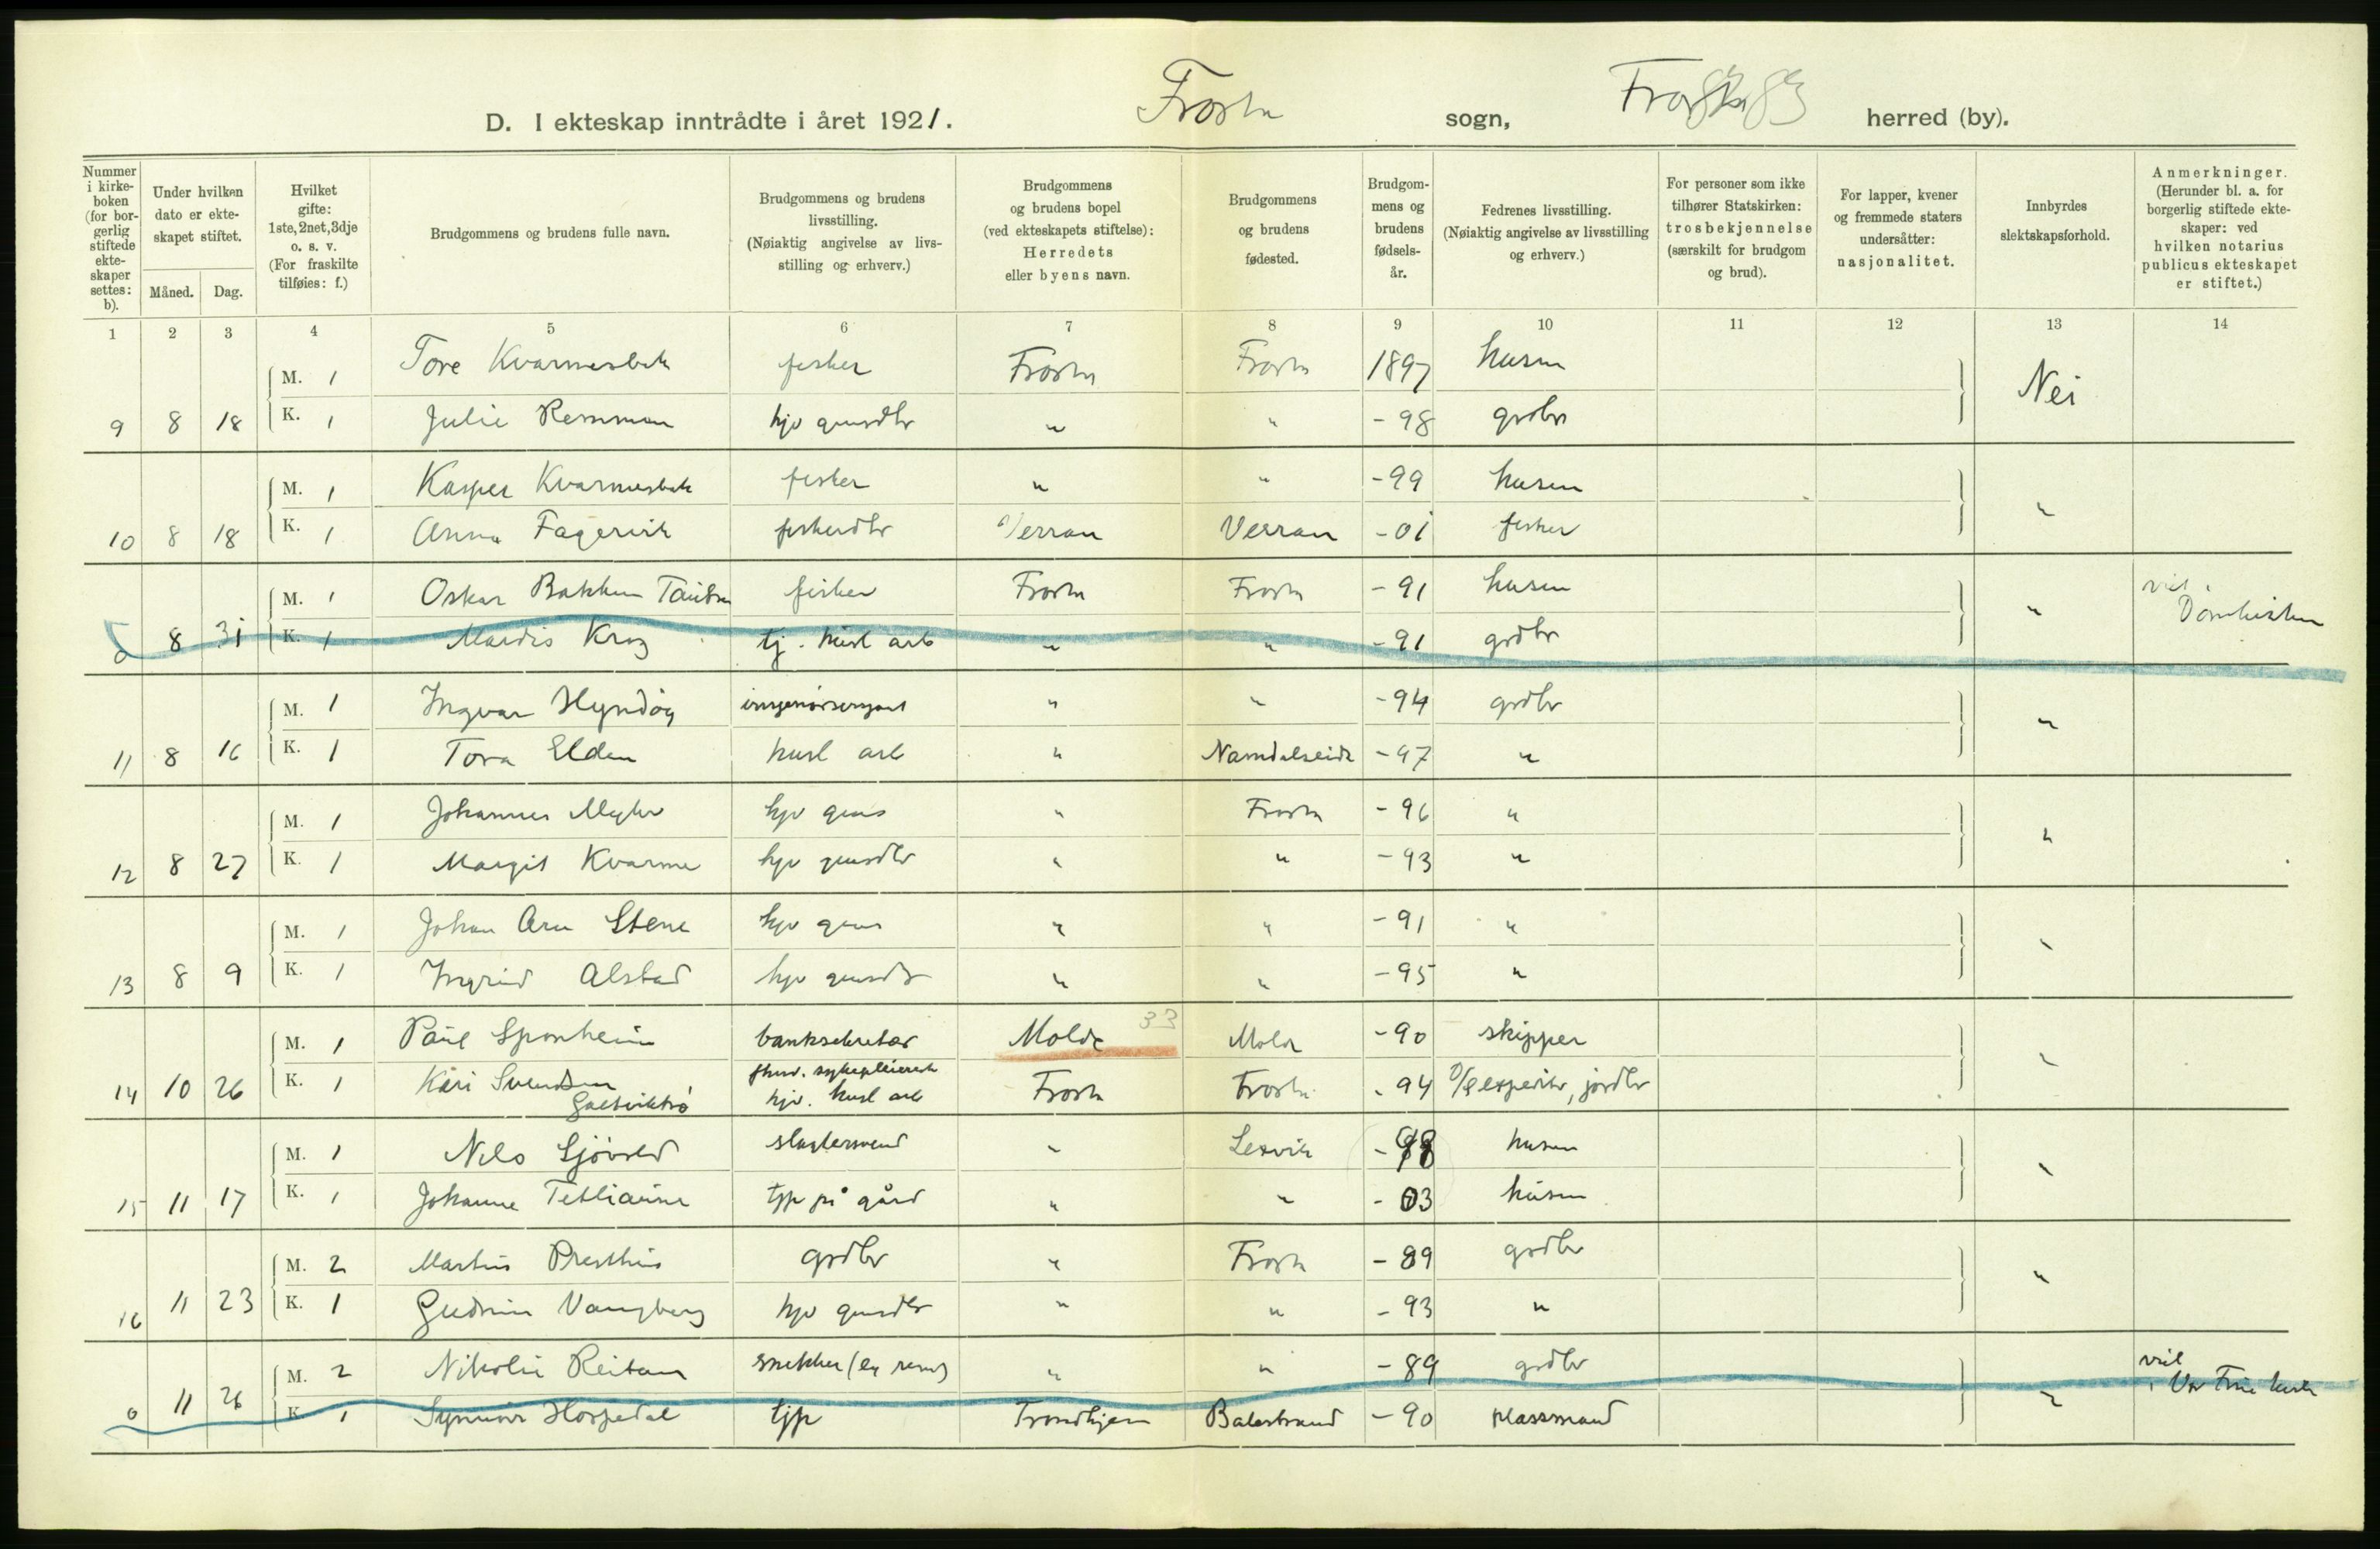 D. I ekteskap inntrådte i året 1921. Frosta sogn, Frosta herred (by).
Nummer i kirke-boken (for bor-gerlig stiftede ekte-skaper settes: b). Under hvilken dato er ekte-skapet stiftet. Måned. Dag. Hvilket gifte: 1ste, 2net, 3dje o. s. v. (For fraskilte tilføies: f.) Brudgommens og brudens fulle navn. Brudgommens og brudens livsstilling. (Nøiaktig angivelse av livs-stilling og erhverv.) Brudgommens og brudens bopel (ved ekteskapets stiftelse): Herredets eller byens navn. Brudgommens og brudens fødested. Brudgom-mens og brudens fødsels-år. Fedrenes livsstilling. (Nøiaktig angivelse av livsstilling og erhverv.) For personer som ikke tilhører Statskirken: trosbekjennelse (særskilt for brudgom og brud). For lapper, kvener og fremmede staters undersåtter: nasjonalitet. Innbyrdes slektskapsforhold. Anmerkninger. (Herunder bl. a. for borgerlig stiftede ekte-skaper: ved hvilken notarius publicus ekteskapet er stiftet.)
1 2 3 4 5 6 7 8 9 10 11 12 13 14
M. 1 Tore Kvarmesbak fisker Frosta Frosta 1897 husm Nei
9 8 18 K. 1 Julie Remman hjv gmsdtr " " -98 grdbr
M. 1 Kasper Kvarmesbak fisker " " -99 husm "
10 8 18 K. 1 Anna Fagervik fiskerdtr Verran Verran -01 fisker
M. 1 Oskar Bakken fisker Frosta Frosta -91 husm " viet i Domkirken
0 8 31 K. 1 Mardis Krog tj. husl arb " " -91 grdbr
M. 1 Ingvar Hyndøy " " -94 grdbr "
11 8 16 K. 1 Tora Elden husl arb " Namdalseide -97 "
M. 1 Johannes Myhr hjv gms " Frosta -96 " "
12 8 27 K. 1 Margit Kvarme hjv gmsdtr " " -93 "
M. 1 Johan Arn Stene hjv gms " " -91 " "
13 8 9 K. 1 Ingrid Alstad hjv gmsdtr " " -95 "
M. 1 Paul Sponheim banksekretær Molde 33 Molde -90 skipper "
14 10 26 K. 1 Kari Svendsen sykepleierske hjv. husl arb Frosta Frosta -94 D/S expeditr, jordbr
M. 1 Nils Sjövold slagtersvend " Leksvik -98 husm "
15 11 17 K. 1 Johanne Tetliaune tjp på gård " " -03 husm
M. 2 Martin Presthus grdbr " Frosta -89 grdbr "
16 11 23 K. 1 Gudrun Vangberg hjv gmsdtr " " -93 "
M. 2 Nikolai Reitan snekker " " -89 grdbr " viet i Vor Frue kirke
0 11 26 K. 1 Synnöve Hospedal tjp Trondhjem Balestrand -90 plassmand